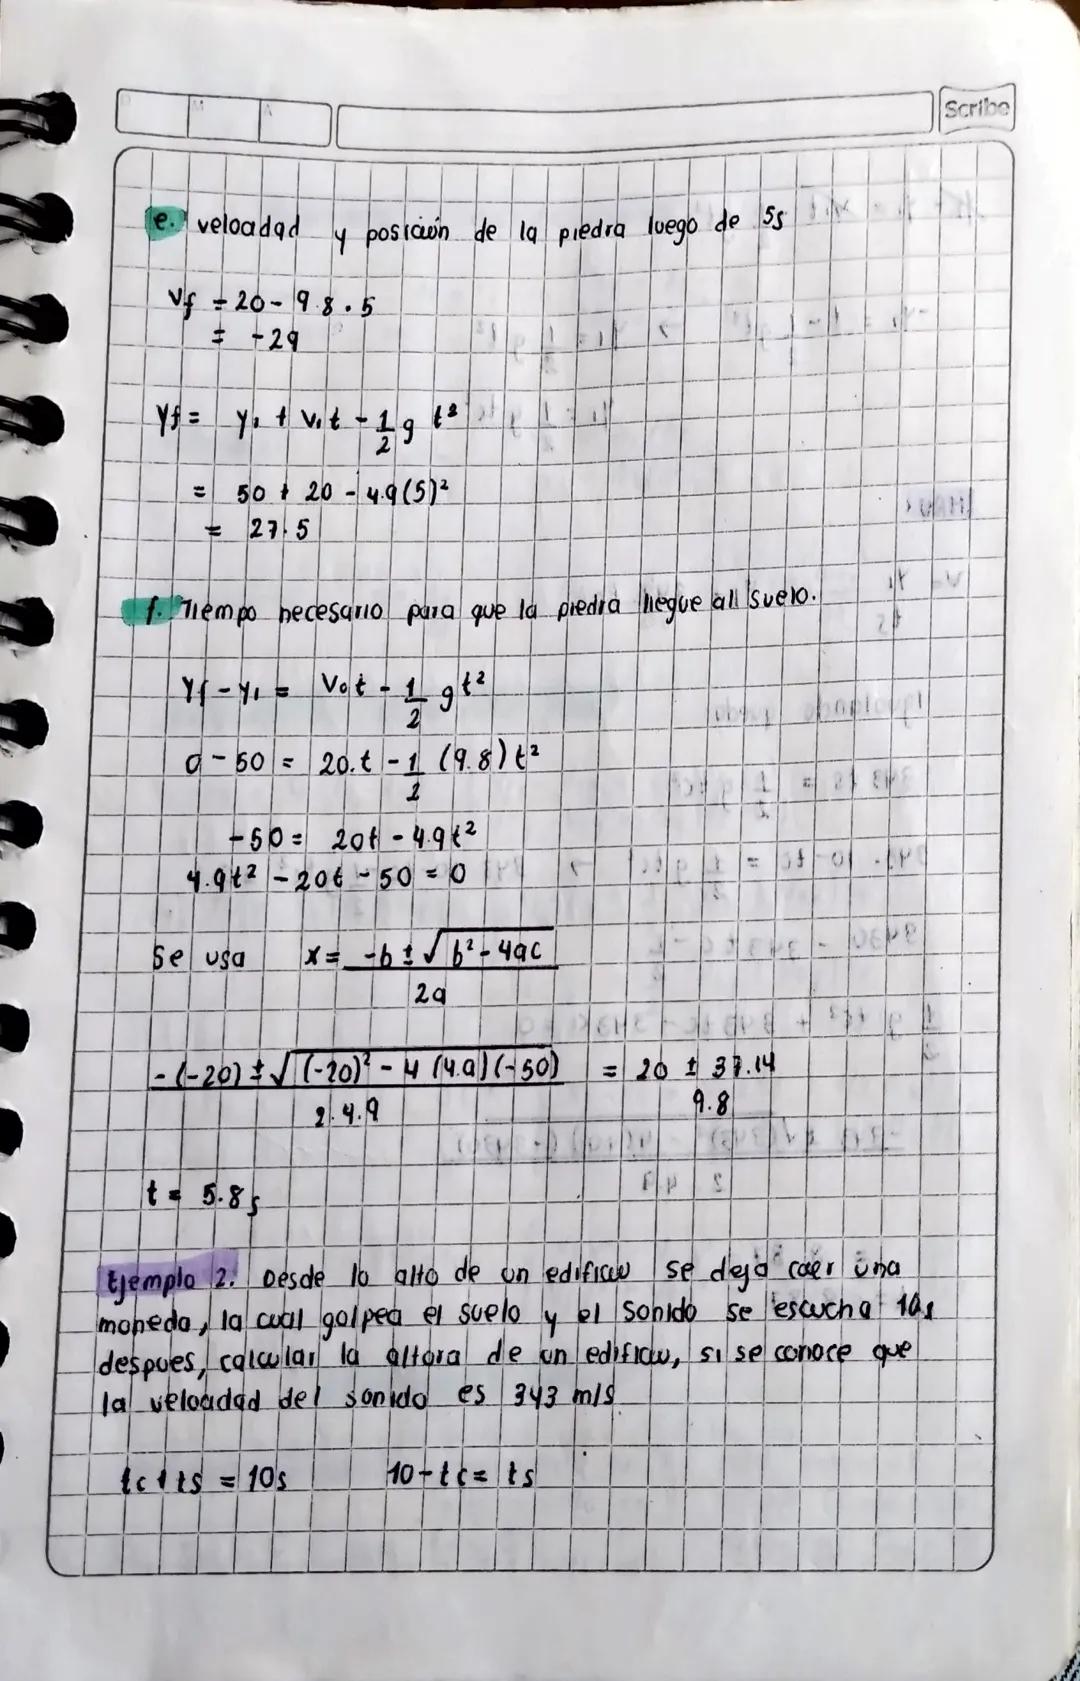 Scribe
e. velocidad y posición de la piedra luego de 5s
Vf = 20 - 9.8 . 5
= -29
Yf = Y₁ + V₁t - 1/2 g t²
= 50 + 20 - 4.9(5)²
= 27.5
f. Tiempo necesario para que la piedra llegue all suelo.
Yf - Y₁ = V₀t - 1/2 g t²
0 - 50 = 20.t - 1/2 (9.8) t²
-50 = 20t - 4.9t²
4.9t² - 20t - 50 = 0
Se usa x = -b ± √b² - 4ac / 2a
-(-20) ± √(-20)² - 4 (4.9)(-50) / 2.4.9 = 20 ± 37.14 / 9.8
t = 5.8s
Ejemplo 2. Desde lo alto de un edificio se deja caer una
moneda, la cual golpea el suelo y el sonido se escucha 10s
despues, calcular la altura de un edificio, si se conoce que
la velocidad del sonido es 343 m/s
tc + ts = 10s 10 - tc = ts